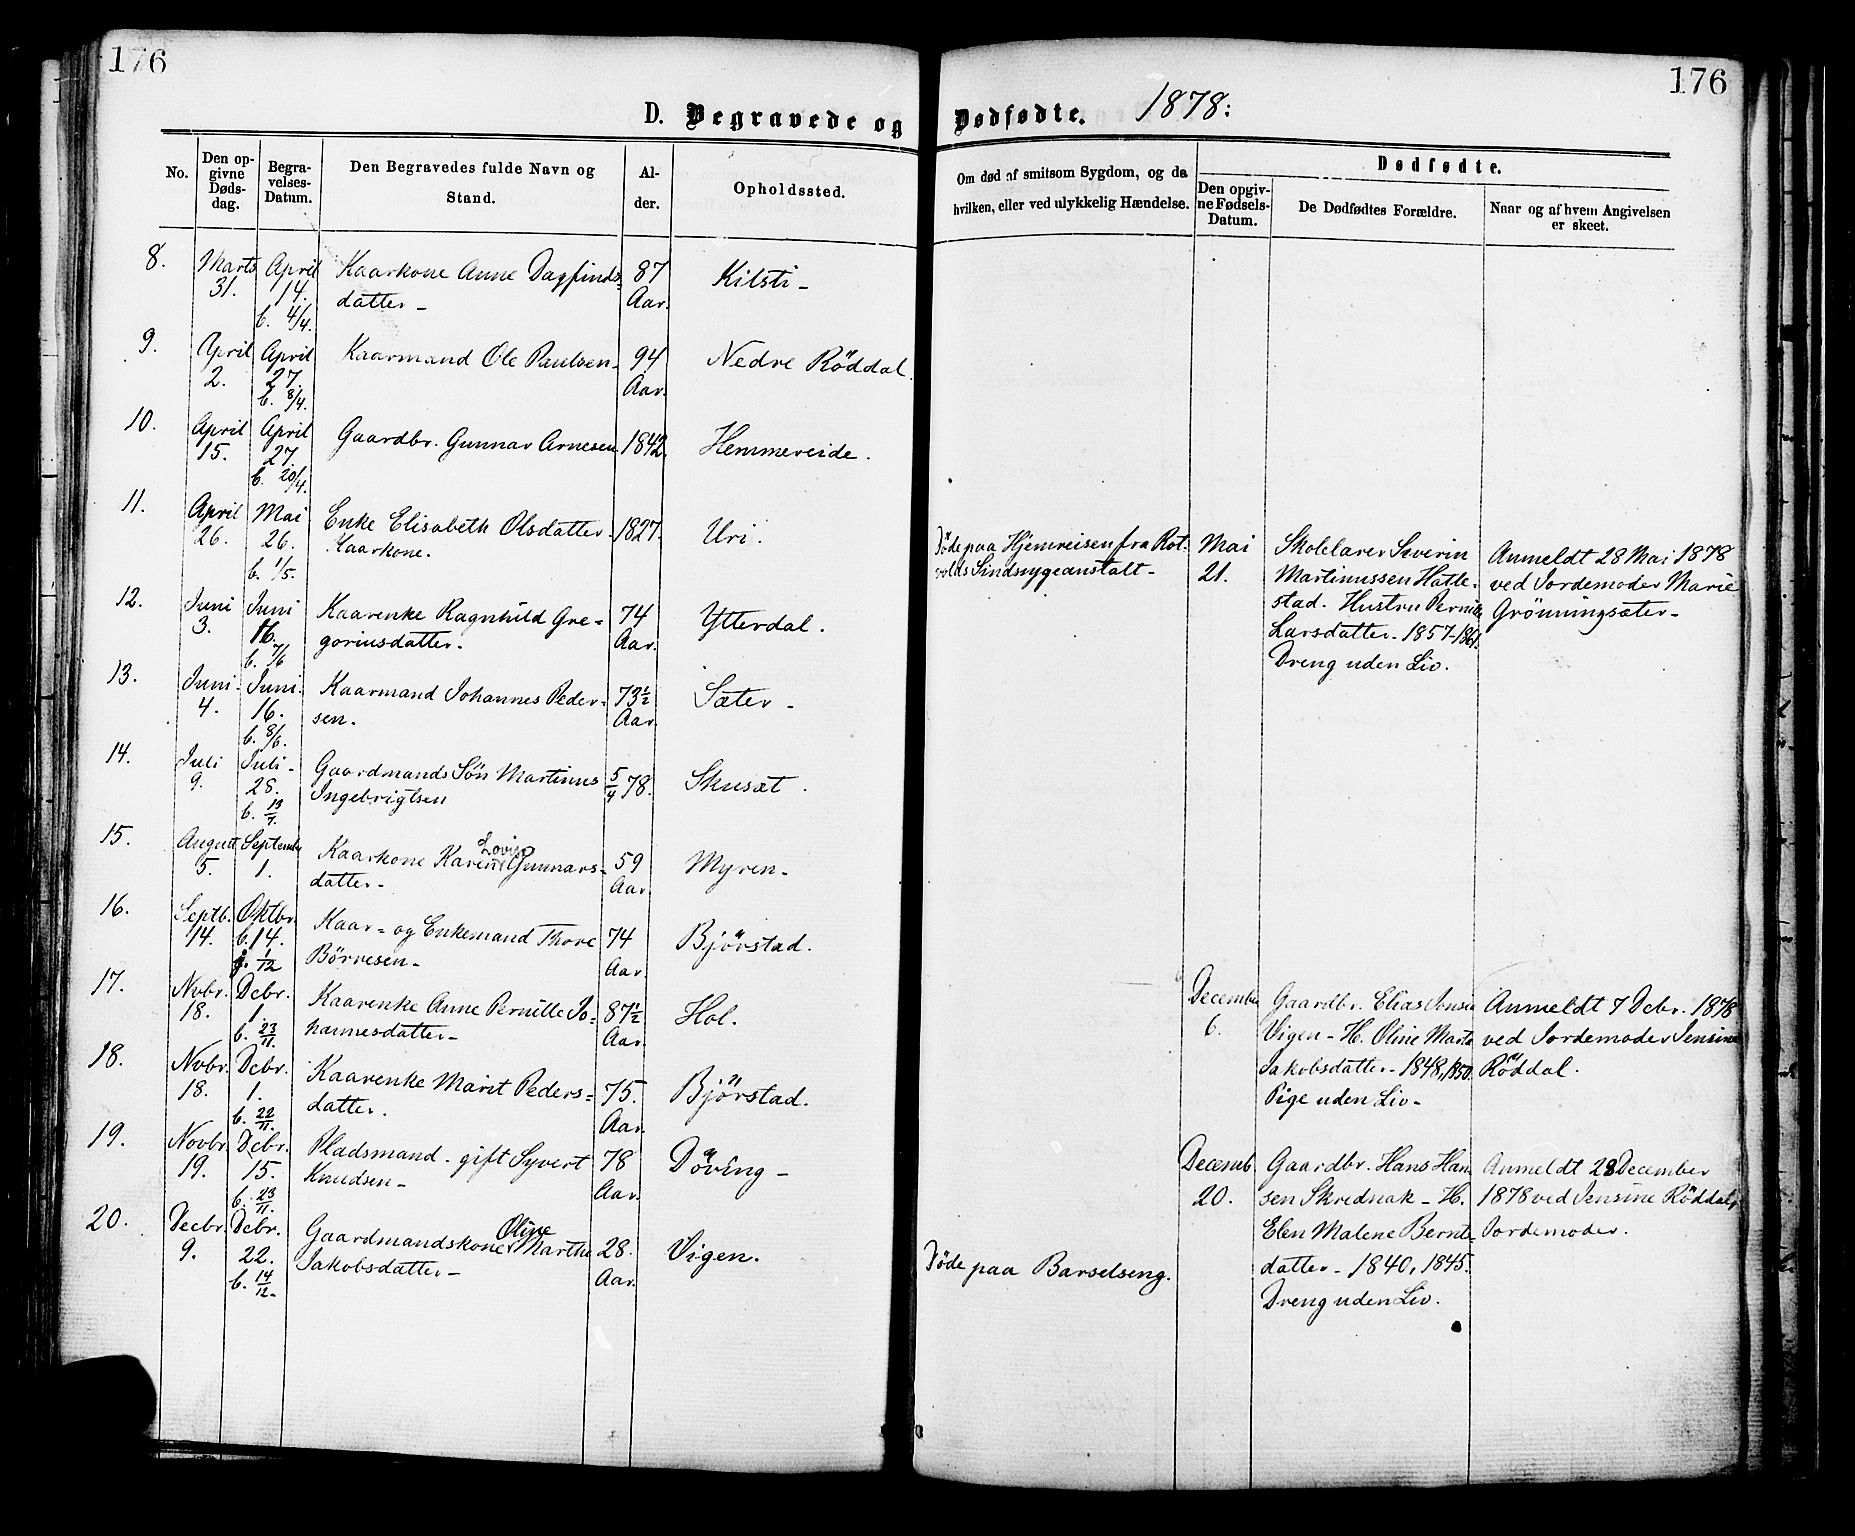 176
176
D. Begravede og Dødfødte. 1878:
No.
Den opgivne Dødsdag.
Begravelses-Datum.
Den Begravedes fulde Navn og Stand.
Alder.
Opholdssted.
Om død af smitsom Sygdom, og da hvilken, eller ved ulykkelig Hændelse.
Dødfødte.
Den opgivne Fødsels-Datum.
De Dødfødtes Forældre.
Naar og af hvem Angivelsen er skeet.
8. Marts April Kaarkone Anne Dagfinds- 87 Kilsti -
31. 14. datter - Aar.
b. 4/4.
9. April April Kaarmand Ole Paulsen - 94 Nedre Röddal.
2. 27. Aar.
b. 8/4.
10. April April Gaardbr. Gunnar Arnesen 1842. Hemmereide.
15. 27.
b. 20/4.
11. April Mai Enke Elisabeth Olsdatter - 1827. Uri.
26. 26. Kaarkone.
b. 1/5.
12. Juni Juni Kaarenke Ragnhild Gre- 74 Ytterdal.
3. 16. goriusdatter - Aar.
b. 7/6
13. Juni Juni Kaarmand Johannes Peder- 73½ Sæter -
4. 16. sen - Aar.
b. 8/6.
14. Juli Juli - Gaardmands Sön Martinus 5/4 78. Skusæt.
9. 28. Ingebrigtsen
b. 13/7.
15. August Septembr Kaarkone Karen Lovise Gunnars- 59 Myren -
5. 1. datter - Aar.
16. Septb. Oktbr. Kaar- og Enkemand Thore 74 Bjørstad.
14. b. 14. Börresen - Aar.
j. 1/12
17. Nvbr. Dcbr. Kaarenke Anne Pernille Jo- 87½ Hol.
18. 1. hannesdatter - Aar.
b. 23/11.
18. Nvbr. Dcbr. Kaarenke Marit Peders- 75. Bjørstad.
18. 1. datter. Aar.
b. 22/11.
19. Novbr. Dcbr. Pladsmand - gift Syvert 78 Döving -
19. 15. Knudsen - Aar.
b. 23/11.
20. Decbr. Dcbr. Gaardmandskone Oline Marthe 28. Vigen.
9. 22. Jakobsdatter - Aar.
b. 14/12.
Døde paa Hjemreisen fra Rot-
volds Sindssygeanstalt -
Mai
21.
Skolelærer Severin
Martinussen Hatle-
stad. Hustru Pernille
Larsdatter - 1857 - 1861.
Dreng uden Liv.
Anmeldt 28 Mai 1878
ved Jordemoder Marie
Grönningsæter -
December
6.
Gaardbr. Elias Jonsen
Vigen - H. Oline Marte
Jakobsdatter - 1848, 1850.
Pige uden Liv -
Anmeldt 7 Dcbr. 1878
ved Jordemoder Jensine
Röddal.
Decemb
20.
Gaardbr. Hans Han
sen Skrednak - H.
Elen Malene Bernt-
datter - 1840, 1845.
Dreng uden Liv.
Anmeldt 28 December
1878 ved Jensine Röddal,
Jordemoder.
Døde paa Barselseng.